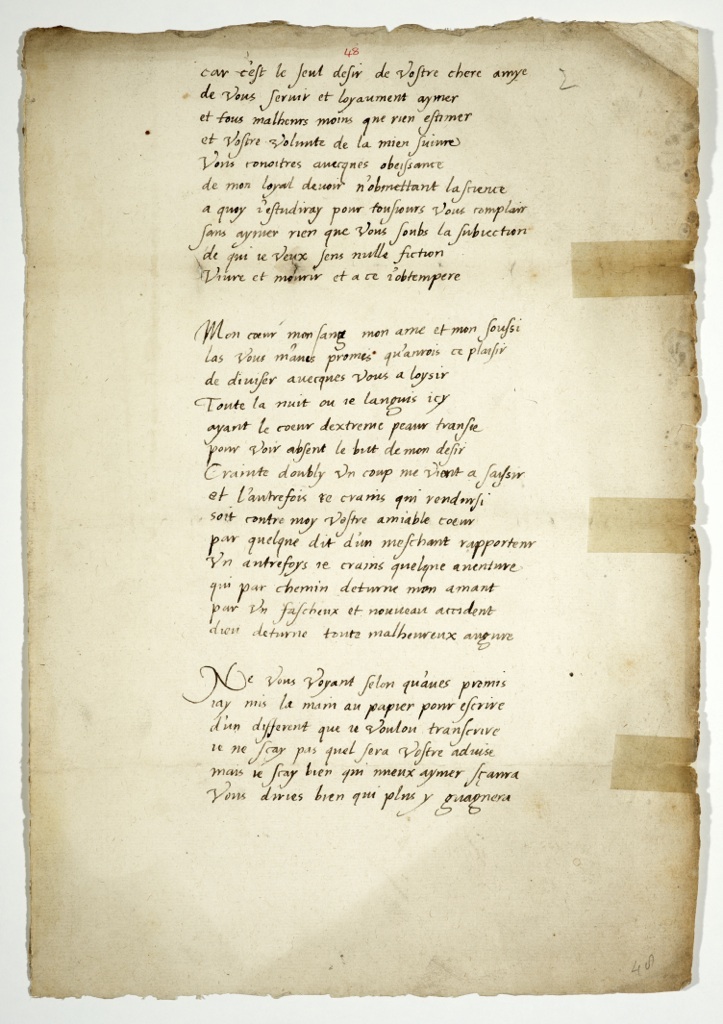 48
2
car c'est le seul desir de vostre chere amye
de vous seruir et loyaument aymer
et tous malheurs moins que rien estimer
et vostre volunte de la mien suiure
Vous conoitres auecques obeissance
de mon loyal deuoir n'obmettant la science
a quoy i'estudiray pour tousiours vous complair
sans aymer rien que vous soubs la subiection
de qui ie veux sens nulle fiction
Viure et mourir et a ce i'obtempere
Mon cœur mon sang mon ame et mon soussi
las vous m'aues promes qu'aurois ce plaisir
de diuiser auecques vous a loysir
Toute la nuit ou ie languis icy
ayant le coeur dextreme peaur transie
pour voir absent le but de mon desir
Crainte doubly vn coup me vient a saisir
et l'autrefois ie crams que rendursi
soit contre moy vostre amiable coeur
par quelque dit d'un meschant rapporteur
Vn autrefoys ie crains quelque auenture
qui par chemin deturne mon amant
par vn fascheux et nouueau accident
dieu deturne toute malheureux augure
Ne vous voyant selon qu'aues promis
i'ay mis la main au papier pour escrire
d'un different que ie voulou transcrire
ie ne scay pas quel sera vostre aduise
mais ie scay bien qui mieux aymer sçaura
Vous diries bien qui plus y guagnera
48